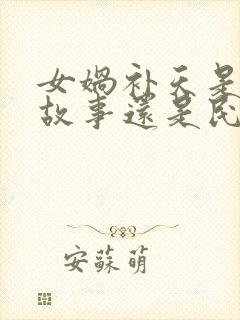 女娲补天是
故事还是民
安蘇萌